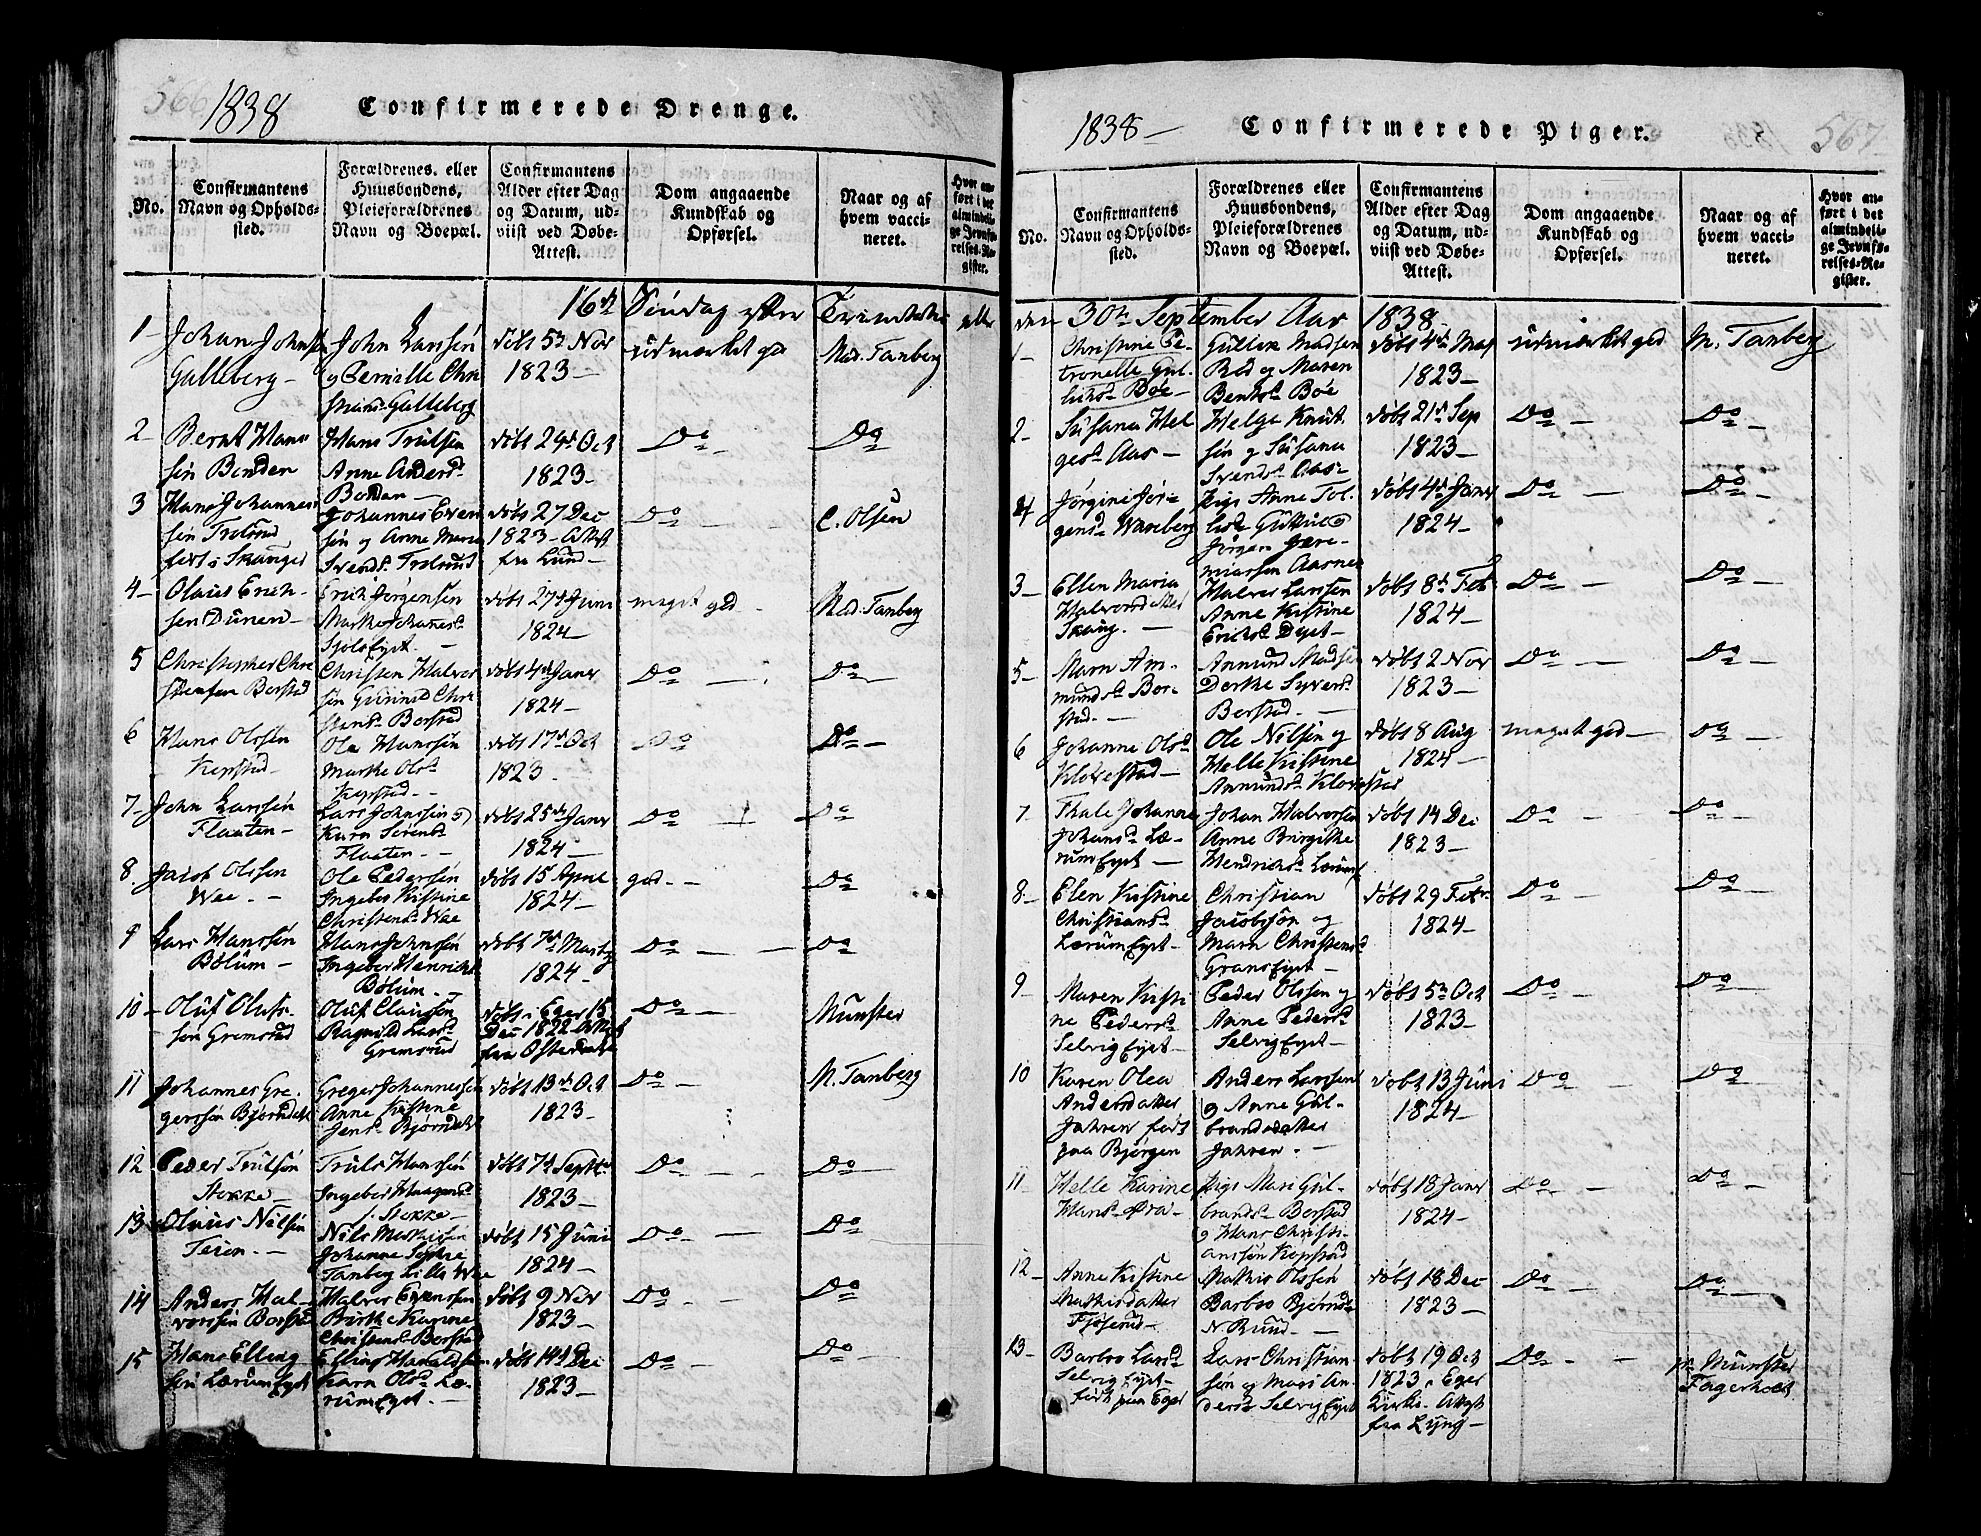 566 1838 Confirmerede Drenge.
No.
Confirmantens
Navn og Opholds-
sted.
Forældrenes eller
Huusbondens,
Pleieforældrenes
Navn og Boepæl.
Confirmantens
Alder efter Dag
og Datum, ud-
viist ved Døbe-
Attest.
Dom angaaende
Kundskab og
Opførsel.
Naar og af
hvem vacci-
neret.
Hvor an-
ført i det
almindeli-
ge Jevnfø-
relses-Re-
gister.
16de Søndag efter Trinitatis eller
1 Johan Johns
Galleberg
John Larssen
og Pernille Chri
Galleberg
døbt 5te Nov
1823
udmærket god
Mad. Tanberg
2 Bernt Hans
sen Bonden
Hans Trulsen
Anne Andersd
Bonden
døbt 24de Oct
1823
Do
Do
3 Hans Johannes
sen Trolsrud
født i Skauger
Johannes Even
sen og Anne Maria
Svendsd Trolsrud
døbt 27 Dec
1823 Attest
fra Lund
Do
C. Olsen
4 Olaus Erich-
sen Dunen
Erich Jørgensen
døbt 27de Juni
1824
meget god
Mad. Tanberg
5 Christopher Chri
stensen Borstad
Christen Halvor
sen Gunnild Chri
stensd Borstad
døbt 4de Janr
1824
Do
Do
6 Hans Olssen
Kopstad
Ole Hanssen
Marthe Olsd
Kopstad
døbt 17de Oct
1823
Do
Do
7 John Larssen
Flaaten
Lars Johnssen og
Karn Sørensd
Flaaten
døbt 25de Janr
1824
Do
Do
8 Jacob Olssen
Wee
Ole Pedersen
Ingeber Kistine
Christensd Wee
døbt 15 Aprie
1824
god
Do
9 Lars Hanssen
Bølum
Hans Johnsen
Ingeber Henrichs
Bølum
døbt 7de Marty
1824
Do
Do
10 Oluf Olufs-
sen Gremsrud
Oluf Claussen
Ragnild Larsd
Gremsrud
døbt i Eger 15
Dec 1822 Attest
fra
Do
Munster
11 Johannes Gre-
gerssen Bjørndalt
Greger Johannessen
Anne Kistine
Jensd Bjørndalt
døbt 13de Oct
1823
Do
M. Tanberg
12 Peder Trulsen
Stokke
Truls Hanssen
Ingeber Haagensd
Stokke
døbt 7de Septbr
1823
Do
Do
13 Olaus Nilsen
Teien
Nils Mathisen
Johanne Sophie
Tanberg Lille Wee
døbt 15 Juni
1824
Do
Do
14 Anders Hal-
vorsen Borstad
Halvor Evensen
Birthe Karine
Christensd Borstad
døbt 9 Nov
1823
Do
Do
15 Hans Elling
sen Lærum Eyet
Elling Haraldsen
Karn Olsd Læ-
rum Eyet
døbt 14de Dec
1823
Do
Do
1838 Confirmerede Piger. 567
No.
Confirmantens
Navn og Opholds-
sted.
Forældrenes eller
Huusbondens,
Pleieforældrenes
Navn og Boepæl.
Confirmantens
Alder efter Dag
og Datum, ud-
viist ved Døbe-
Attest.
Dom angaaende
Kundskab og
Opførsel.
Naar og af
hvem vacci-
neret.
Hvor an-
ført i det
almindeli-
ge Jevnfø-
relses-Re-
gister.
den 30te September Aar 1838
1 Christine Pe-
tronelle Gul-
liksd Bøe
Gullik Madsen
Rød og Maren
Bentsd Bøe
døbt 4de Mai
1823
udmærket god
M. Tanberg
2 Susana Hel
gesd Aas
Helge Knut
sen og Susana
Svendsd Aas
døbt 21de Sep
1823
Do
Do
4 Jørgine Jør-
gensd Wareberg
Pige Anne Tol-
Jørgen Jere-
miassen Aarnes
døbt 4de Janr
1824
Do
Do
3 Ellen Maria
Halvorsdatter
Skaug
Halvor Larssen
Anne Kistine
Erichsd Eyet
døbt 8de Feb
1824
Do
Do
5 Marn Am-
mundsd Bor-
stad
Ammund Madsen
Dorthe Syversd
Borstad
døbt 2 Nov
1823
Do
Do
6 Johanne Olsd
Klovestad
Ole Nilsen og
Helle Kistine
Amundsd Klovestad
døbt 8 Aug
1824
meget god
Do
7 Thale Johanne
Johansd Læ-
rum Eyet
Johan Halvorsen
Anne Birgithe
Hendrichsd Lærum
døbt 14 Dec
1823
Do
Do
8 Elen Kistine
Christiansd
Lærum Eyet
Christian
Jacobsøn og
Marn Christensd
Grans Eyet
døbt 29 Febr
1824
Do
Do
9 Maren Kisti
ne Pedersd
Selvig Eyet
Peder Olssen og
Anne Pedersd
Selvig Eyet
døbt 5te Oct
1823
Do
Do
10 Karen Olea
Andersdatter
Jahren født
paa Bjørgen
Anders Larssen
og Anne Gul-
brandsdatter
Jahren
døbt 13 Juni
1824
Do
Do
11 Helle Karine
Hansd
Pige Mari Gul-
brandsd Borstad
og Hans Christi-
anssen Kopstad
døbt 18 Janr
1824
Do
Do
12 Anne Kistine
Mathisdatter
Fjøserud
Mathis Olssen
Barbro Bjørnsd
N. Rund
døbt 18 Dec
1823
Do
Do
13 Barbro Larsd
Selvig Eyet
født paa Eger
Lars Christian
sen og Mari An
dersd Selvig Eyet
døbt 19 Oct
1823 i Eger
Kirke Attest
fra Lyng
Do
pr Munster
Fagerholt